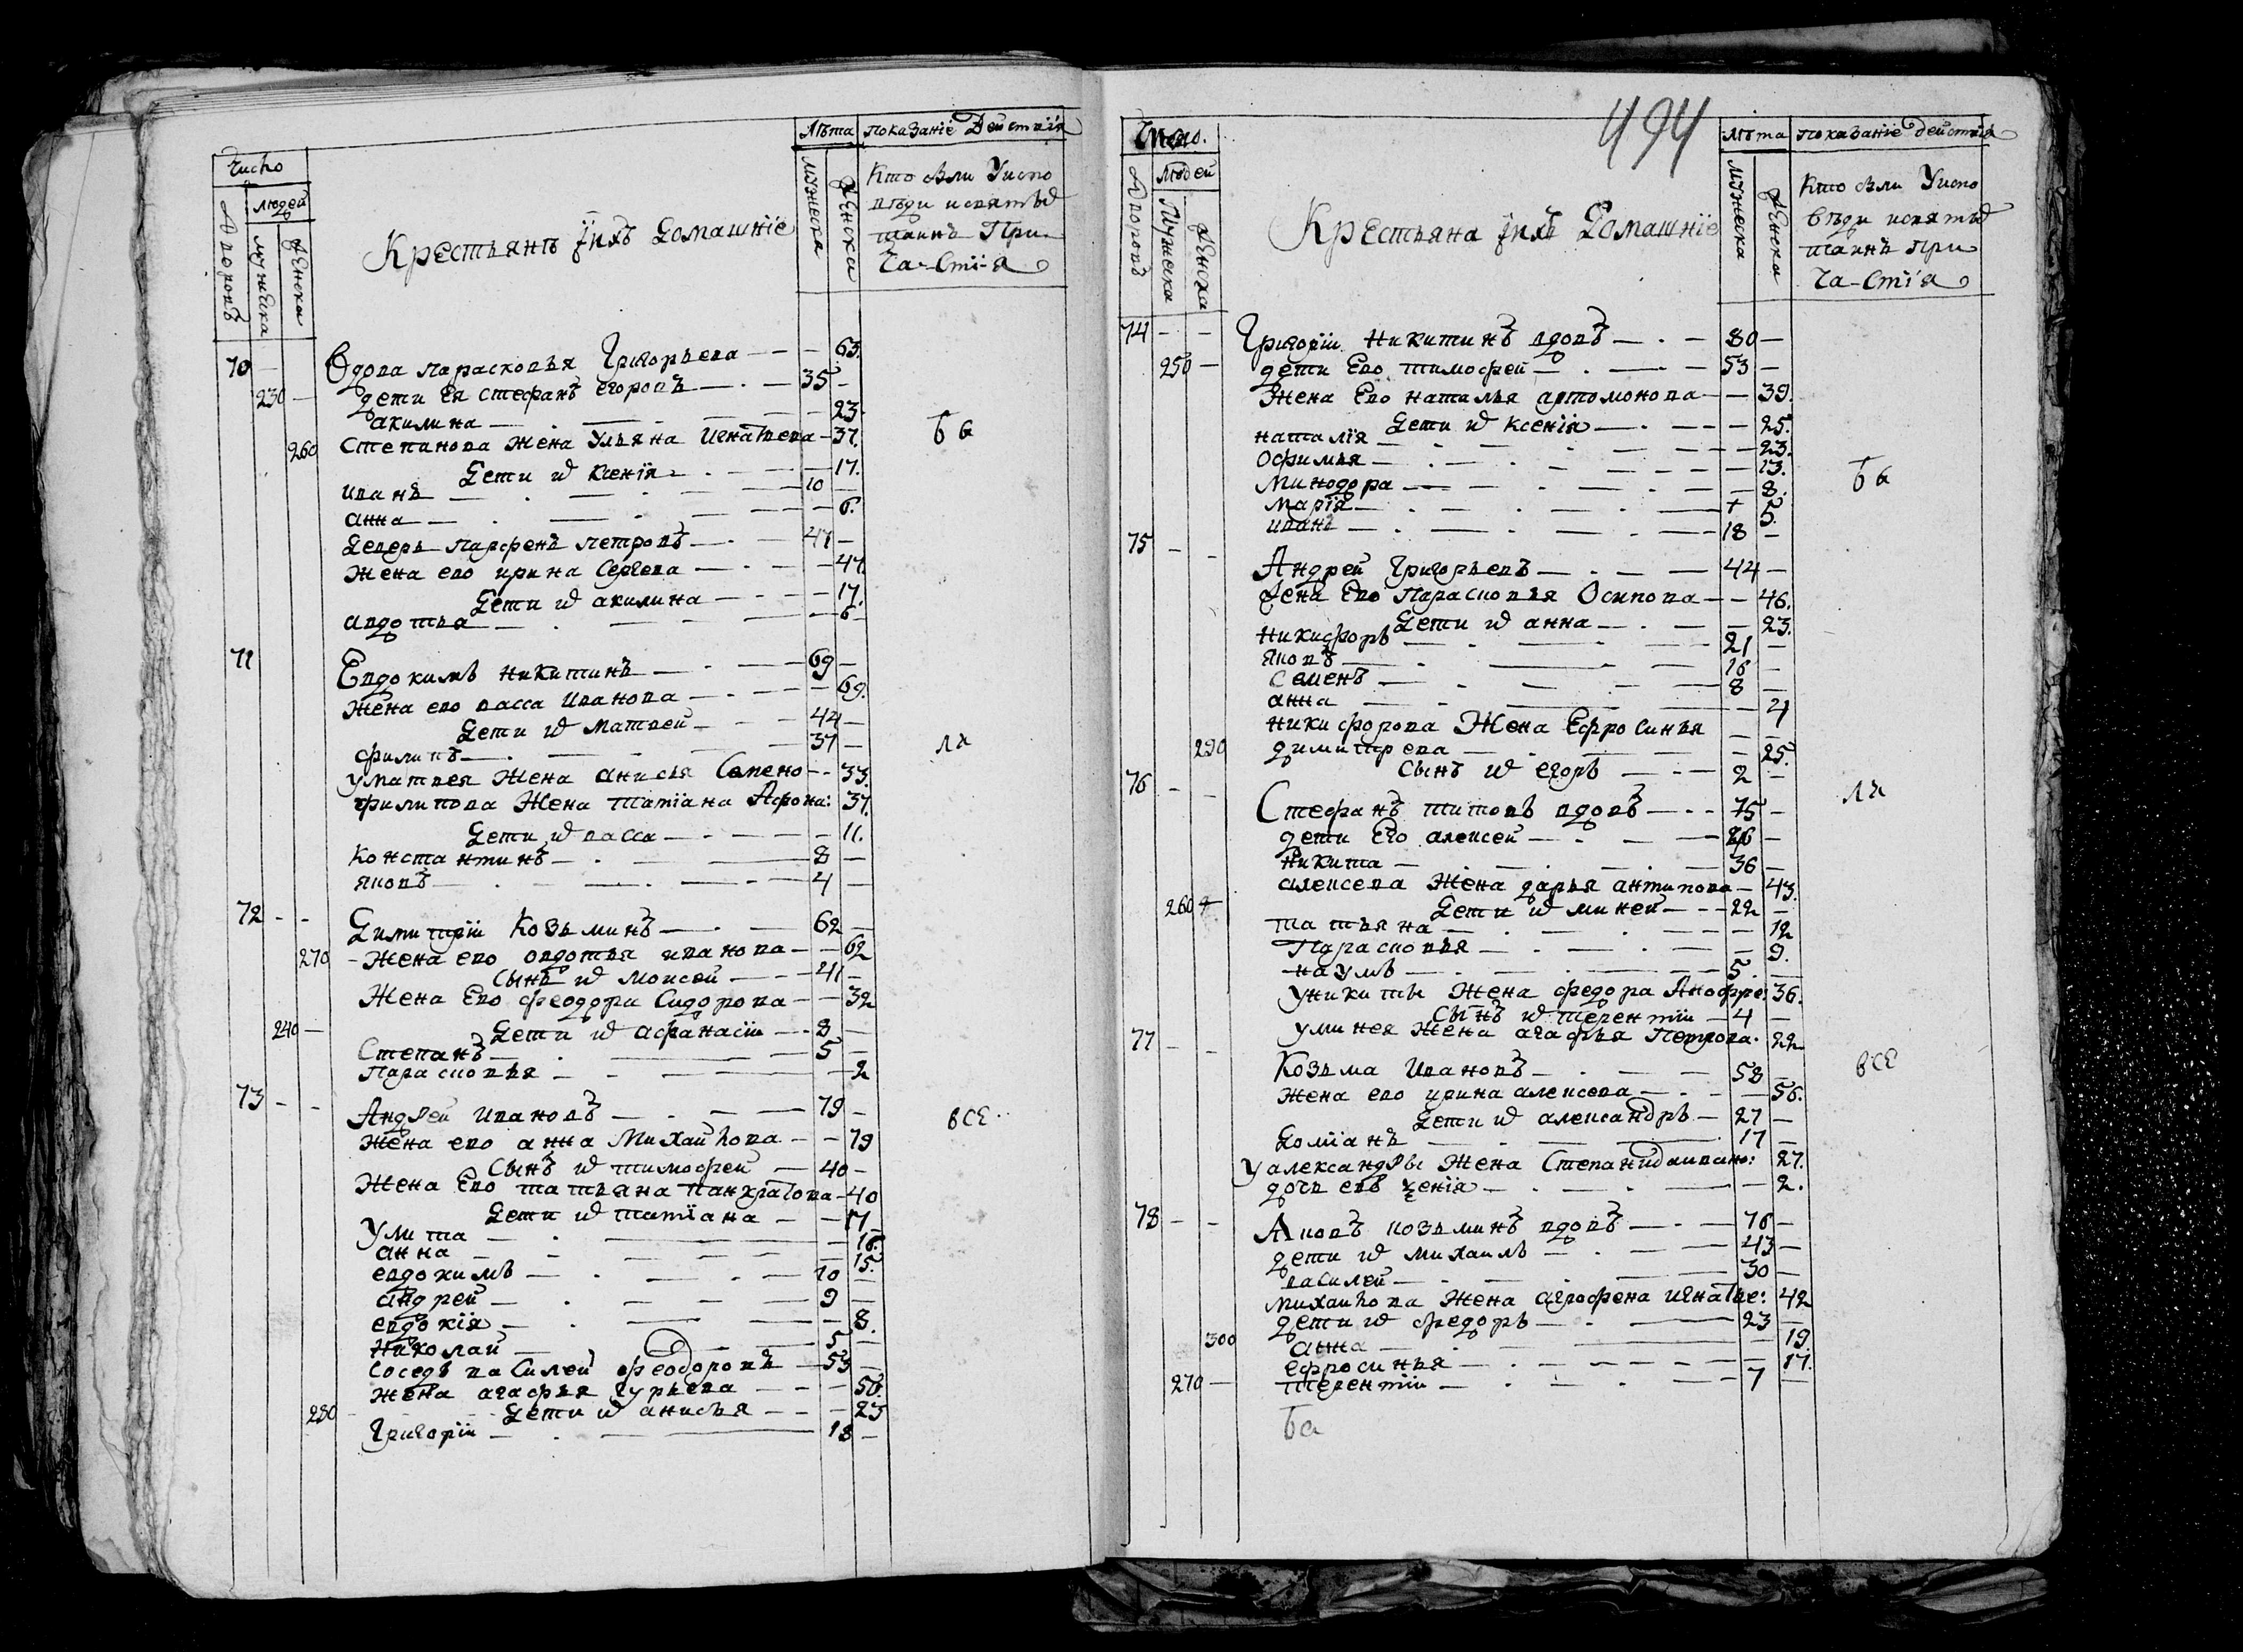 Число
людей
Дворовъ
мужеска
женска
Крестьянъ ихъ домашніе
Лѣта
мужеска
женска
показаніе Действія
Кто были Уиспо
вѣди исвятыхъ
таинъ При
ча-стія
70 - Вдова парасковья Григорьева - 63.
230 - дети ея стефанъ егоровъ - 35 -
акилина - 23
260 степанова жена Ульяна игнатьева - 37. ба
Дети их ксенія - 17.
иванъ - 10 -
анна - 6.
Деверь парфенъ петровъ - 47 -
жена ево ирина Сергева - 47
Дети их акилина - 17.
авдотья - 6
71 Евдокимъ никитинъ - 69 -
жена ево васса иванова - 69.
Дети их матвей - 44 -
филипъ - 37 - ля
у матвея жена анисья Семено - 33.
филипова жена татіана Афона: 37.
Дети их васса - 11.
константинъ - 8 -
яковъ - 4 -
72 - - Димитрій Козьминъ - 62 -
270 - жена ево овдотья иванова - 62
Сынъ их моисей - 41 -
жена Ево феодора Сидорова - 32
240 - Дети их афанасіи - 8 -
Степанъ - 5 -
парасковья - 2
73 - - Андрей ивановъ - 79 - все
жена ево анна михайлова - 79
Сынъ их тимофей - 40 -
жена Ево татьяна панкратова - 40
Дети их татіана - 17
улита - 16.
анна - 15.
евдокимъ - 10 -
андрей - 9 -
евдокія - 8.
николай - 5 -
соседъ василей феодоровъ - 53 -
жена агафья гурьева - 50.
280 - Дети их анисья - 25
Григоріи - 18 -
494
Число.
людей
Дворовъ
мужеска
женска
Крестьяна ихъ домашніе
Лѣта
мужеска
женска
показаніе действія
Кто были Уиспо
вѣди исвятыхъ
таинъ при
ча-стія
74 - - Григоріи никитинъ вдовъ - 80 -
250 - дети Ево тимофей - 53 -
жена Ево наталья артомонова - 39.
Дети их ксенія - 25.
наталія - 23.
офимья - 13.
минодора - 8. ба
марія - 5.
иванъ - 18 -
75 - - Андрей Григорьевъ - 44 -
жена Ево парасковья Осипова - 46.
Дети их анна - 23.
никифоръ - 21 -
яковъ - 16 -
Семенъ - 8 -
анна - 4
никифорова жена Ефросинья
290 димитрева - 25.
Сынъ их егоръ - 2 -
76 - - Стефанъ титовъ вдовъ - 75 - ля
дети Его алексей - 46 -
никита - 36 -
алексева жена дарья антипова - 43.
260 Дети их миней - 22 -
татьяна - 12
парасковья - 9.
наумъ - 5. -
у никиты жена федора Анофре: 36.
Сынъ их терентіи - 4 -
у минея жена агафья петрова. 22
77 - - Козьма ивановъ - 58 - все
жена ево ирина алексева - 56.
Дети их александръ - 27 -
Доміанъ - 17 -
у александры жена Степанида ивано: 27.
дочь евъ ксенія - 2.
78 - - Яковъ козьминъ вдовъ - 76 -
дети их михаилъ - 43 -
василей - 30 -
михайлова жена агрофена игнатье: 42
дети их федоръ - 23 -
300 анна - 19.
ефросинья - 17.
270 - терентіи - 7 -
ба